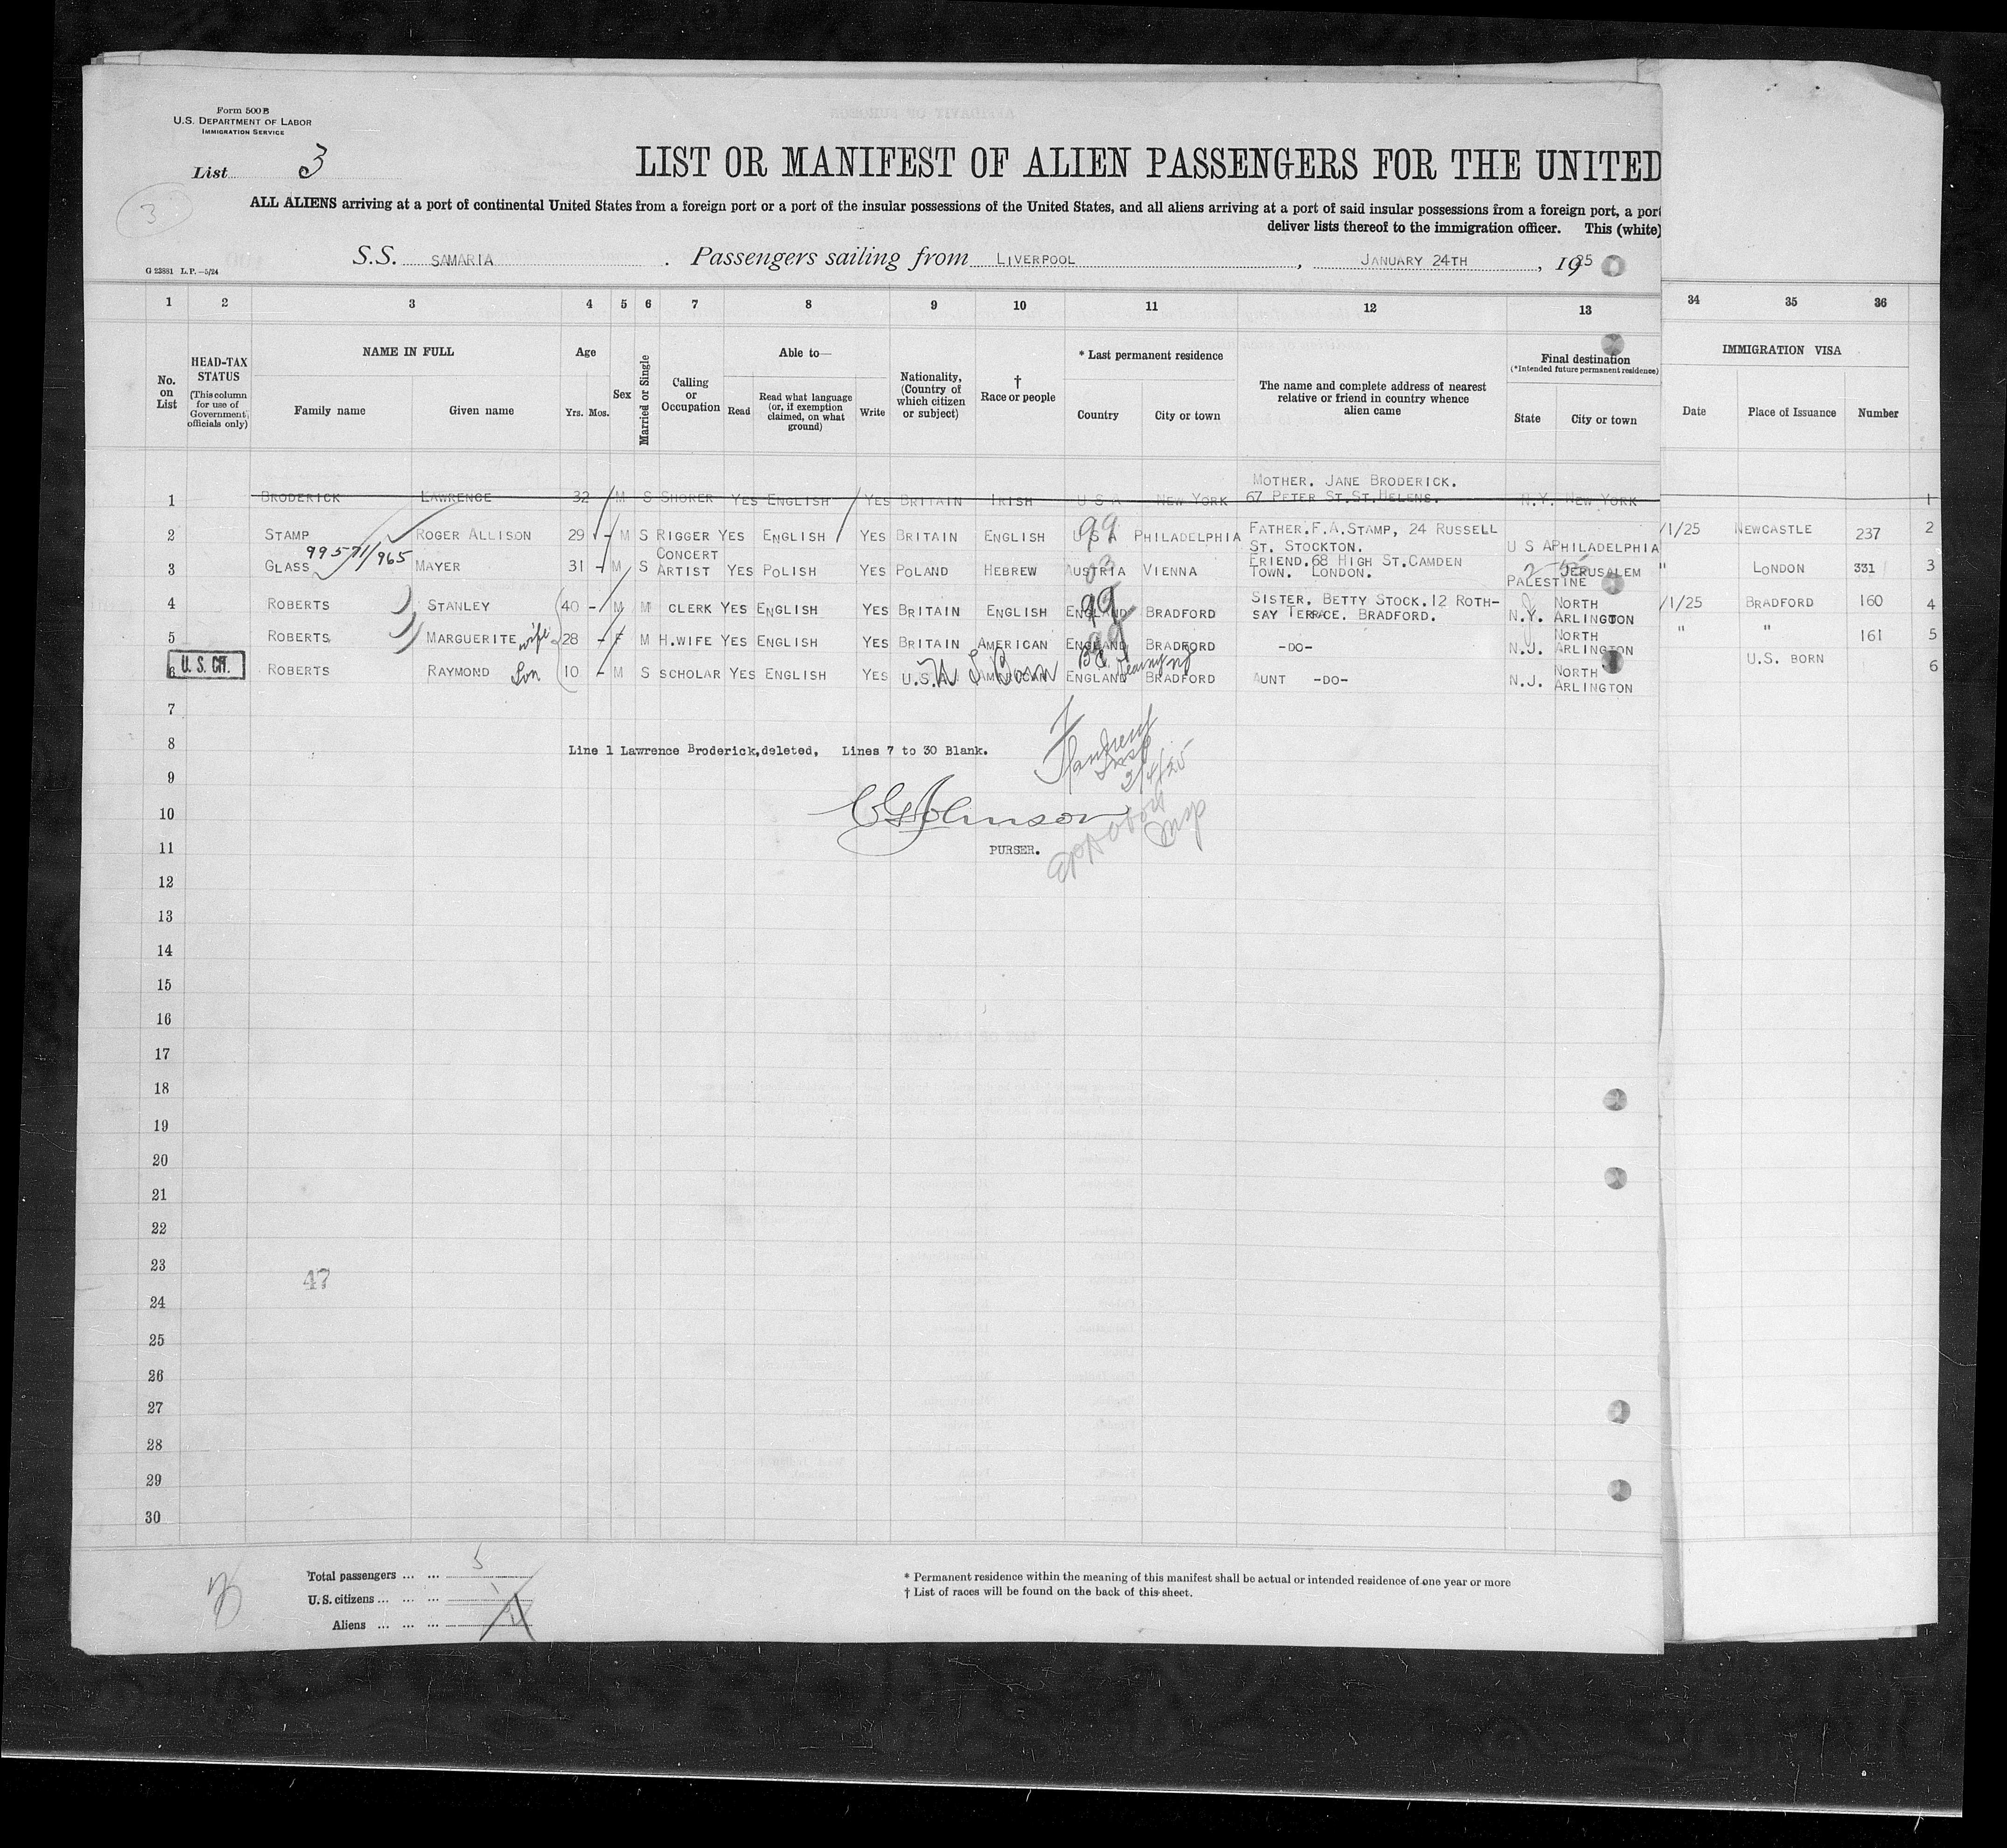 Form 500 B
U.S. DEPARTMENT OF LABOR
IMMIGRATION SERVICE
List 3
3
LIST OR MANIFEST OF ALIEN PASSENGERS FOR THE UNITED
ALL ALIENS arriving at a port of continental United States from a foreign port or a port of the insular possessions of the United States, and all aliens arriving at a port of said insular possessions from a foreign port, a port
deliver lists thereof to the immigration officer. This (white)
S.S. SAMARIA . Passengers sailing from LIVERPOOL , JANUARY 24TH , 1925
G 23881 L.P.—5/24
1 2 3 4 5 6 7 8 9 10 11 12 13 34 35 36
No. on List
HEAD-TAX STATUS (This column for use of Government officials only)
NAME IN FULL
Family name Given name
Age
Yrs. Mos.
Sex
Married or Single
Calling or Occupation
Able to—
Read
Read what language (or, if exemption claimed, on what ground)
Write
Nationality, (Country of which citizen or subject)
† Race or people
* Last permanent residence
Country City or town
The name and complete address of nearest relative or friend in country whence alien came
Final destination
(*Intended future permanent residence)
State City or town
IMMIGRATION VISA
Date Place of Issuance Number
MOTHER. JANE BRODERICK.
1 BRODERICK LAWRENCE 32 M S SHORER YES ENGLISH YES BRITAIN IRISH U S A NEW YORK 67 PETER ST. ST. HELENS. N.Y. NEW YORK 1
2 STAMP ROGER ALLISON 29 - M S RIGGER YES ENGLISH YES BRITAIN ENGLISH U S A 99 PHILADELPHIA FATHER. F.A. STAMP, 24 RUSSELL ST. STOCKTON. U S A PHILADELPHIA /1/25 NEWCASTLE 237 2
99571/965
3 GLASS MAYER 31 - M S CONCERT ARTIST YES POLISH YES POLAND HEBREW AUSTRIA VIENNA FRIEND. 68 HIGH ST. CAMDEN TOWN. LONDON. PALESTINE JERUSALEM " LONDON 331 3
4 ROBERTS STANLEY 40 - M M CLERK YES ENGLISH YES BRITAIN ENGLISH ENGLAND 99 BRADFORD SISTER. BETTY STOCK. 12 ROTH-
SAY TERRACE. BRADFORD. N.Y. NORTH ARLINGTON /1/25 BRADFORD 160 4
5 ROBERTS MARGUERITE wife 28 - F M H.WIFE YES ENGLISH YES BRITAIN AMERICAN ENGLAND BRADFORD -DO- N.J. NORTH ARLINGTON " " 161 5
U.S. CIT.
6 ROBERTS RAYMOND Son 10 - M S SCHOLAR YES ENGLISH YES U.S.A. U S Born AMERICAN ENGLAND BRADFORD AUNT -DO- N.J. NORTH ARLINGTON U.S. BORN 6
7
8 Line 1 Lawrence Broderick, deleted, Lines 7 to 30 Blank.
Insp
2/4/25
9
10 Johnson
11 PURSER.
12
13
14
15
16
17
18
19
20
21
22
23
47
24
25
26
27
28
29
30
Total passengers ... ... 5
U.S. citizens ... ... ...
Aliens ... ... ...
* Permanent residence within the meaning of this manifest shall be actual or intended residence of one year or more
† List of races will be found on the back of this sheet.